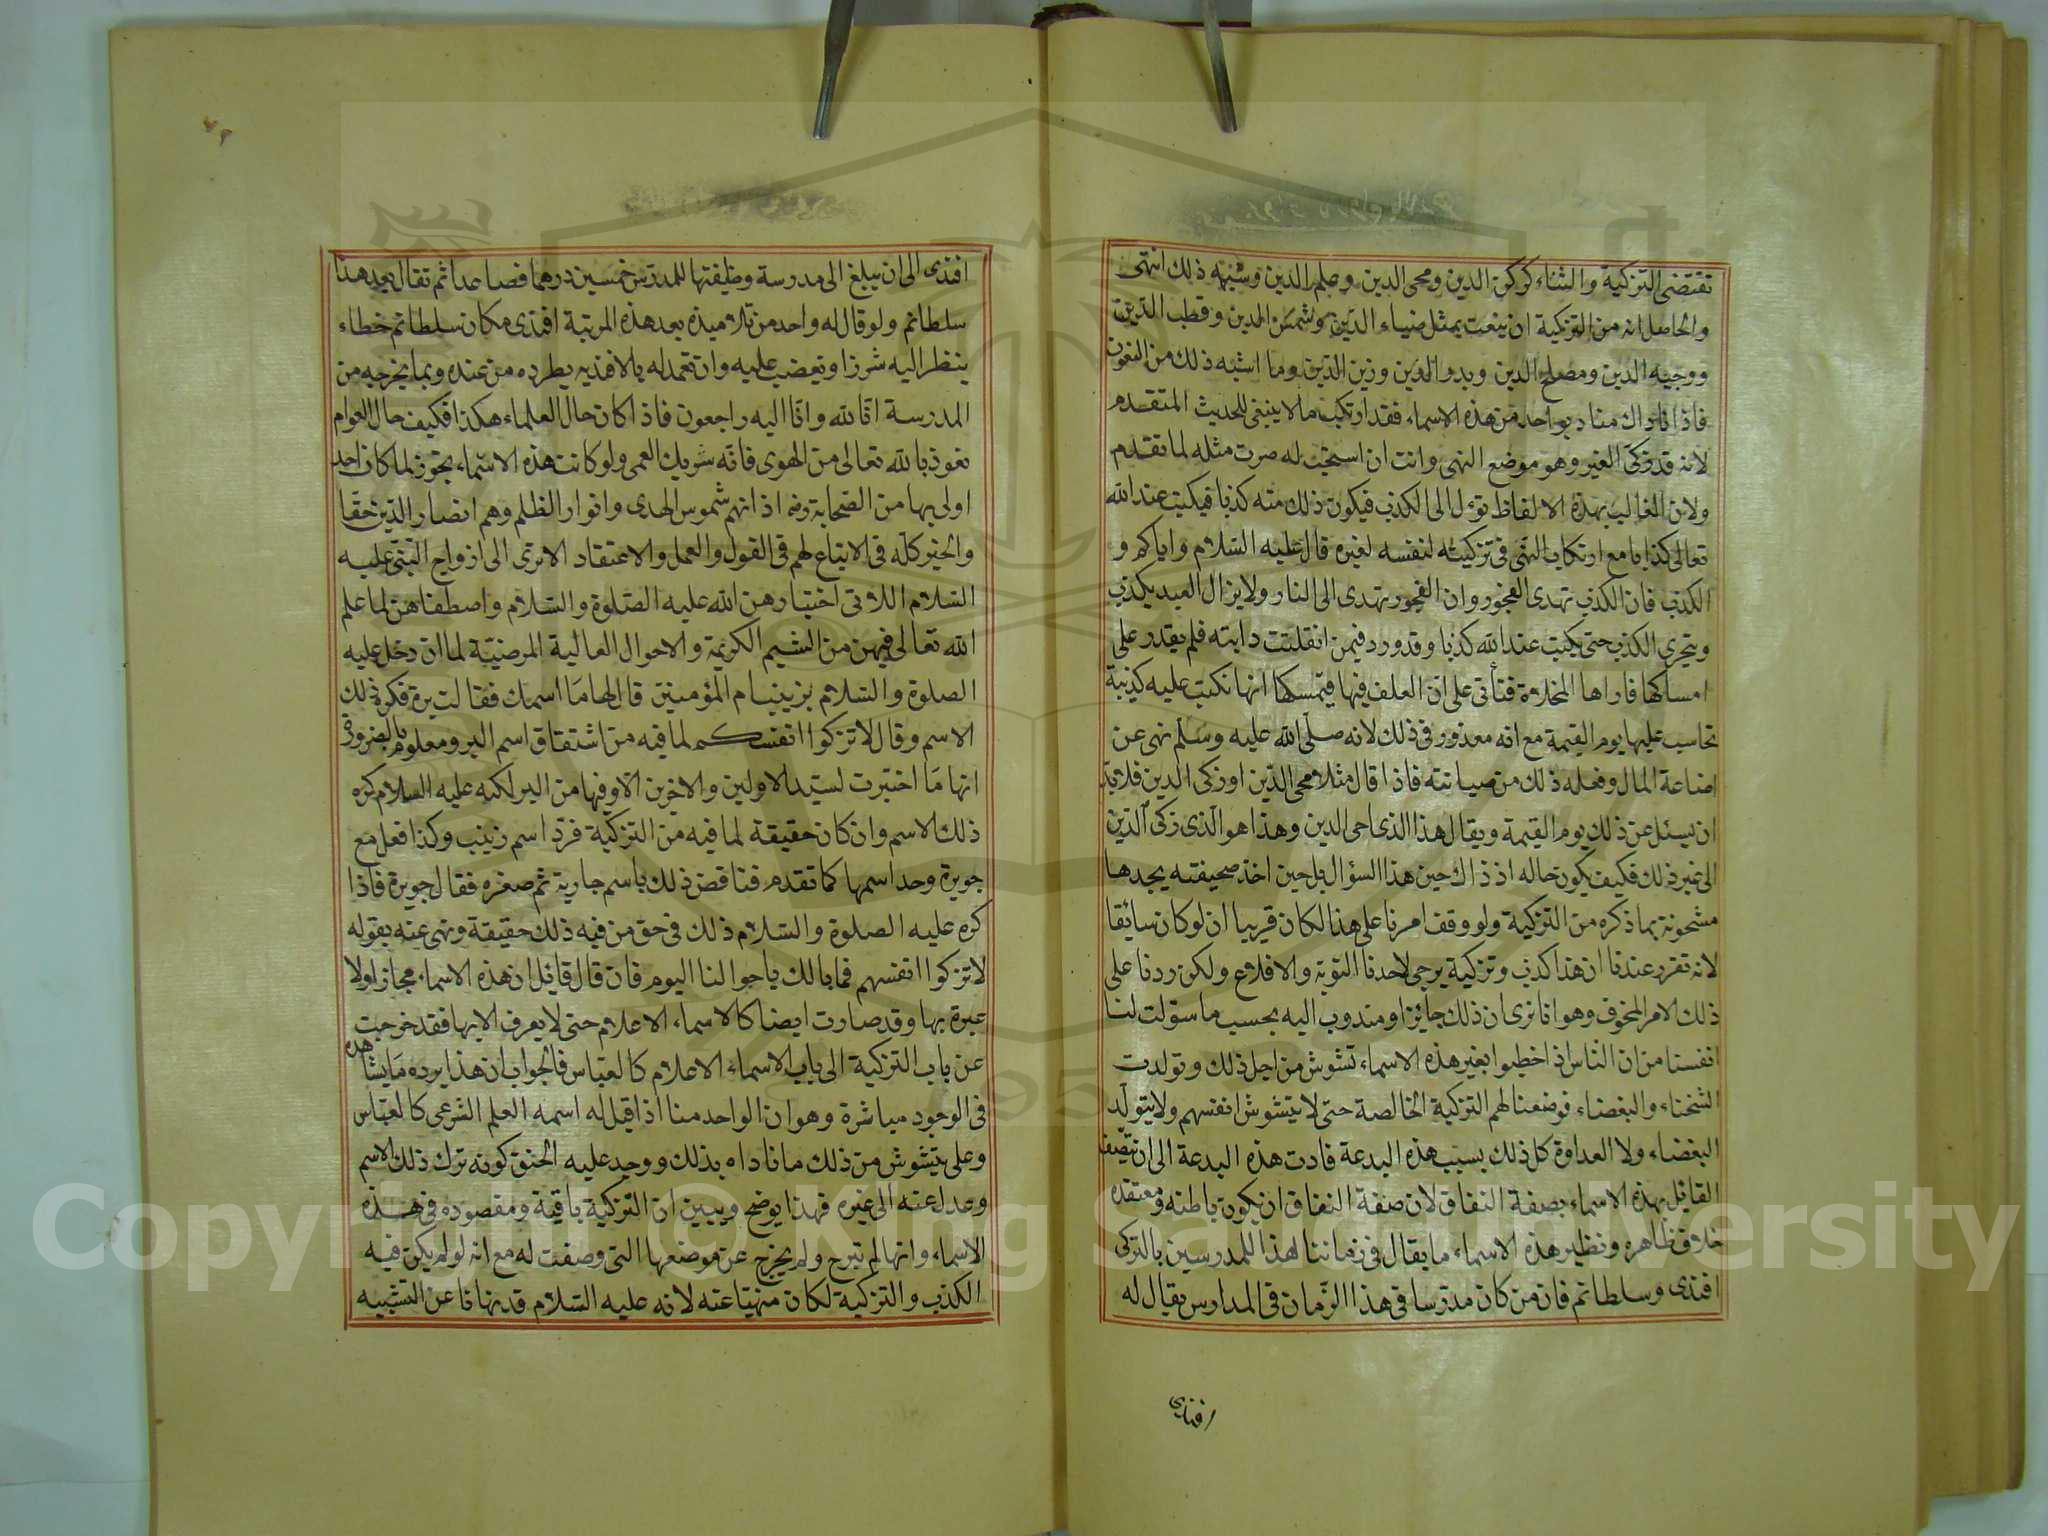 تقتضى التزكية والثناء كركن الدين ومحى الدين وعلم الدين وشبهه ذلك انتهى
والحاصل انه من التزكية ان ينعت بمثل ضياء الدين وشمس الدين وقطب الدين
ووجيه الدين ومصلح الدين وبدر الدين وزين الدين وما اشبه ذلك من النعوت
فاذا ناداك مناد بواحد من هذه الاسماء فقد ارتكب ما لا ينبغى للحديث المتقدم
لانه قد زكى الغير وهو موضع النهى وانت ان استجبت له صرت مثله لما تقدم
ولان الغالب بهذه الالفاظ تؤل الى الكذب فيكون ذلك منه كذبا فيكتب عند الله
تعالى كذابا مع ارتكاب النهى فى تزكيته لنفسه لغيره قال عليه السلام واياكم و
الكذب فان الكذب تهدى الفجور وان الفجور تهدى الى النار ولا يزال العبد يكذب
ويتحرى الكذب حتى يكتب عند الله كذبا وقد ورد فيمن انفلتت دابته فلم يقدر على
امساكها فاراها المخلاة فتأتى على ان العلف فيها فيمسكها انها تكتب عليه كذبة
تحاسب عليها يوم القيمة مع انه معذور فى ذلك لانه صلى الله عليه وسلم نهى عن
اضاعة المال وفعله ذلك من صيانته فاذا قال مثلا محى الدين او زكى الدين فلا بد
ان يسئل عن ذلك يوم القيمة ويقال هذا الذى احى الدين وهذا هو الذى زكى الدين
الى غير ذلك فكيف يكون حاله اذ ذاك حين هذا السؤال بل حين اخذ صحيفته يجدها
مشحونة بما ذكره من التزكية ولو وقف امرنا على هذا لكان قريبا ان لو كان سائقا
لانه تقرر عندنا ان هذا كذب وتزكية يرجى لاحدنا التوبة والاقلاع ولكن ردنا على
ذلك الامر المخوف وهو انا نرى ان ذلك جائز او مندوب اليه بحسب ما سولت لنا
انفسنا من ان الناس اذا خطبوا بغير هذه الاسماء تشوش من اجل ذلك وتولدت
الشحناء والبغضاء فوضعنا لهم التزكية الخالصة حتى لا يتشوش انفسهم ولا يتولد
البغضاء ولا العداوة كل ذلك بسبب هذه البدعة فادت هذه البدعة الى ان تصف
القائل بهذه الاسماء بصفة النفاق لان صفة النفاق ان يكون باطنه ومعتقده
خلاف ظاهره ونظير هذه الاسماء ما يقال فى زماننا لهذا للمدرسين بالتركى
افندى وسلطانم فان من كان مدرسا فى هذا الزمان فى المدارس يقال له
افندى
افندى الى ان يبلغ الى مدرسة وظيفتها للمدرس خمسين درهما فصاعدا ثم تقال بعد هذا
سلطانم ولو قال له واحد من تلاميذه بعد هذه المرتبة افندى مكان سلطانم خطاء
ينظر اليه شررا ويغضب عليه وان تعمد له بالافندية يطرده من عنده وبما يخرجه من
المدرسة انا لله وانا اليه راجعون فاذا كان حال العلماء هكذا فكيف حال العوام
نعوذ بالله تعالى من الهوى فانه شريك العمى ولو كانت هذه الاسماء يجوز لما كان احد
اولى بها من الصحابة رضه اذ انهم شموس الهدى وانوار الظلم وهم انصار الدين حقا
والخير كله فى الاتباع لهم فى القول والعمل والاعتقاد الا ترى الى ازواج النبى عليه
السلام اللاتى اختارهن الله عليه الصلوة والسلام واصطفاهن لما علم
الله تعالى فيهن من الشيم الكريمة والاحوال العالية المرضية لما ان دخل عليه
الصلوة والسلام بزينب ام المؤمنين قال لها ما اسمك فقالت برة فكره ذلك
الاسم وقال لا تزكوا انفسكم لما فيه من اشتقاق اسم البر ومعلوم بالضرورة
انها ما اختيرت لسيد الاولين والاخرين الا وفيها من البر لكنه عليه السلام كره
ذلك الاسم وان كان حقيقة لما فيه من التزكية فرد اسم زينب وكذا فعل مع
جويرة وحد اسمها كما تقدم فناقض ذلك باسم جارية ثم صغره فقال جويرة فاذا
كره عليه الصلوة والسلام ذلك فى حق من فيه ذلك حقيقة ونهى عنه بقوله
لا تزكوا انفسهم فما بالك باحوالنا اليوم فان قال قائل ان هذه الاسماء مجاز او لا
عبرة بها وقد صارت ايضا كالاسماء الاعلام حتى لا يعرف الا بها فقد خرجت
عن باب التزكية الى باب الاسماء الاعلام كالعباس فالجواب ان هذا يرده ما يشاهده
فى الوجود مباشرة وهو ان الواحد منا اذا قيل له اسمه العلم الشرعى كالعباس
وعلى يتشوش من ذلك ما ناداه بذلك ووجد عليه الحنق كونه ترك ذلك الاسم
وعدل عنه الى غيره فهذا يوضح ويبين ان التزكية باقية ومقصوده فى هذه
الاسماء وانها لم تبرح ولم يخرج عن موضعها التى وصفت له مع انه لو لم يكن فيه
الكذب والتزكية لكان منهيا عنه لانه عليه السلام قد نهانا عن التشبيه
Copyright © King Saud University